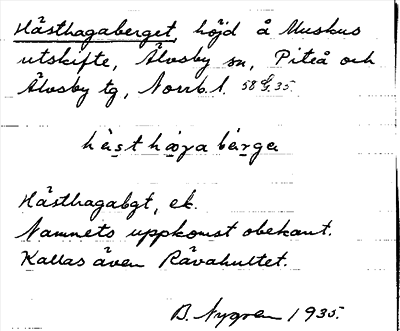 Hästhagaberget, höjd å Muskus
utskifte, Älvsby sn, Piteå och
Älvsby tg, Norrb. l. 58 G. 35.
hä̀st hɑga bǽrgə
Hästhagabgt, ek.
Namnets uppkomst obekant.
Kallas även Rävahultet.
B. Nygren 1935.